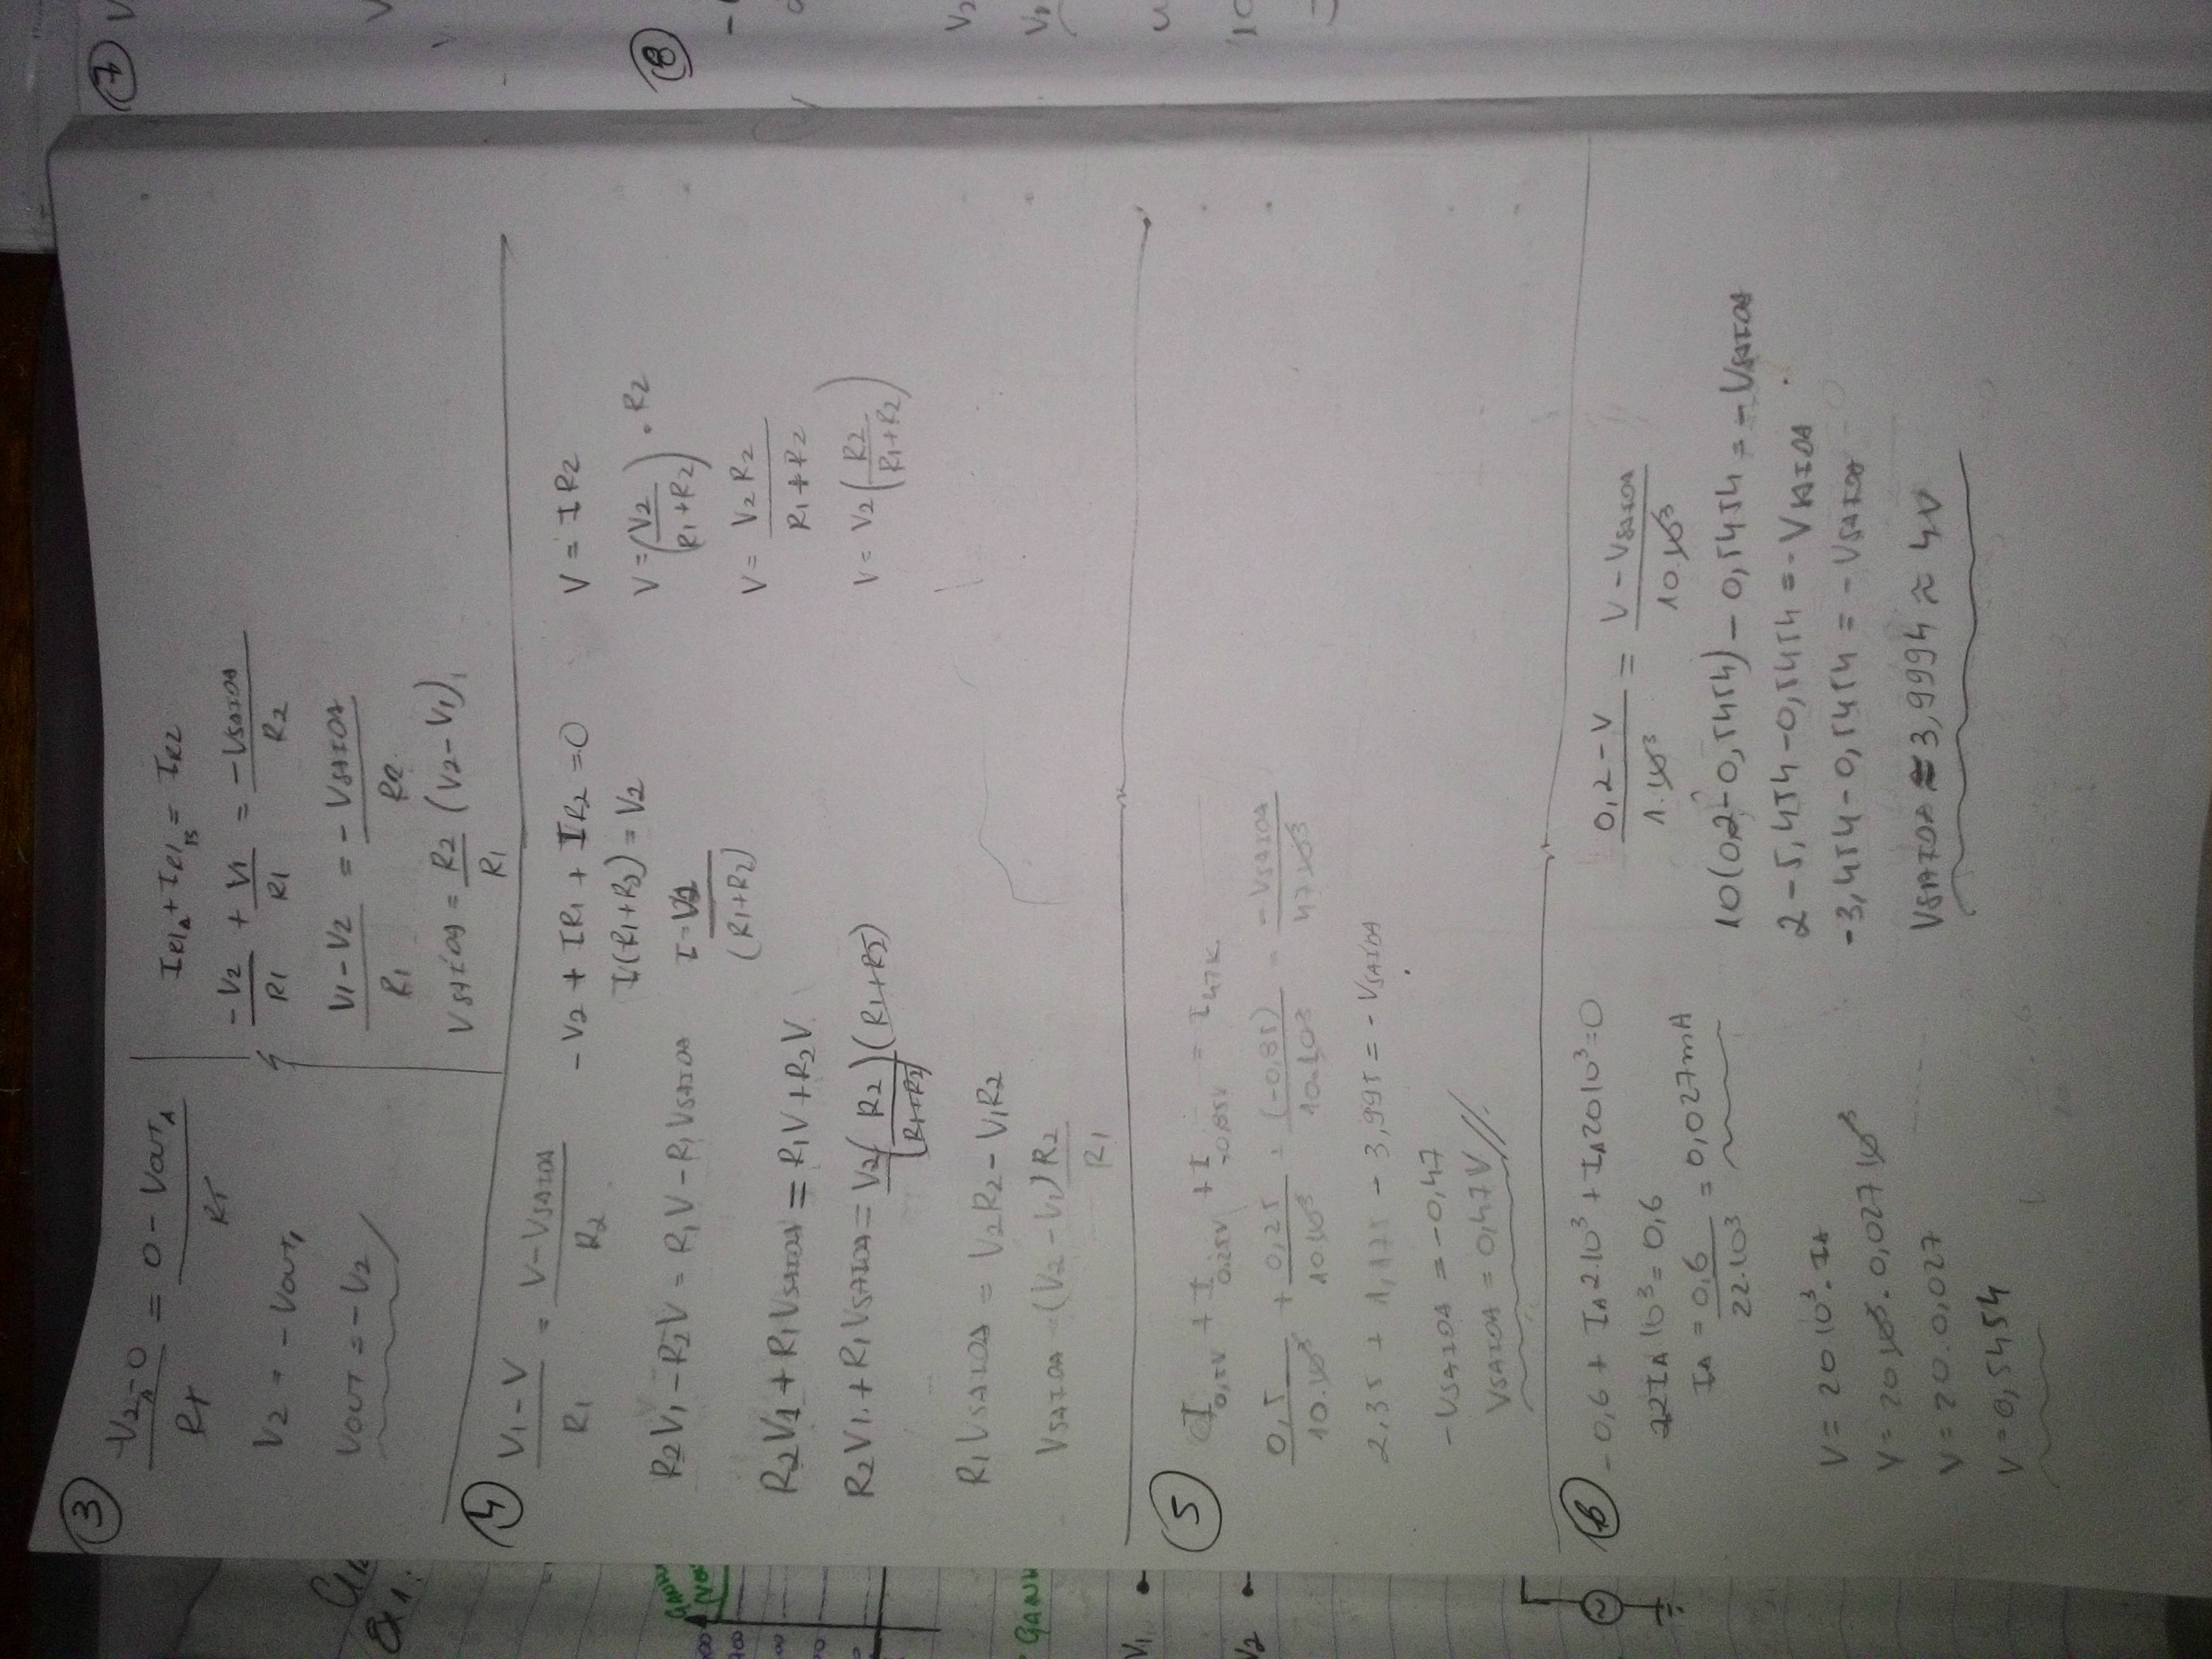 ③
-V2 - 0 / RT = 0 - VOUT1 / RT
V2 = - VOUT1
VOUT = - V2
IR1A + IR1B = IR2
-V2/R1 + V1/R1 = -VSAIDA/R2
V1 - V2 / R1 = - VSAIDA / R2
VSAIDA = R2/R1 (V2 - V1)
④
V1 - V / R1 = V - VSAIDA / R2
R2V1 - R2V = R1V - R1VSAIDA
R2V1 + R1VSAIDA = R1V + R2V
R2V1 + R1VSAIDA = V2(R2)/(R1+R2) (R1+R2)
R1VSAIDA = V2R2 - V1R2
VSAIDA = (V2 - V1)R2 / R1
-V2 + IR1 + IR2 = 0
I(R1+R2) = V2
I = V2 / (R1+R2)
V = IR2
V = (V2 / R1+R2) . R2
V = V2R2 / R1+R2
V = V2 (R2 / R1+R2)
⑤
I0,5V + I0,25V + I-0,85V = I47K
0,5/10.10³ + 0,25/10.10³ + (-0,85)/10.10³ = -VSAIDA/47.10³
2,35 + 1,175 - 3,995 = -VSAIDA
-VSAIDA = -0,47
VSAIDA = 0,47V
⑥
-0,6 + IA2.10³ + IA20.10³=0
22IA10³=0,6
IA = 0,6 / 22.10³ = 0,027mA
V = 20.10³.IA
V = 20.10³.0,027.10³
V = 20.0,027
V = 0,5454
0,2 - V / 1.10³ = V - VSAIDA / 10.10³
10(0,2-0,5454) - 0,5454 = -VSAIDA
2 - 5,454 - 0,5454 = -VSAIDA
-3,454 - 0,5454 = -VSAIDA
VSAIDA ≈ 3,9994 ≈ 4V
⑦
V
⑧
V2
10
Ex1.
GANH
V1
V2